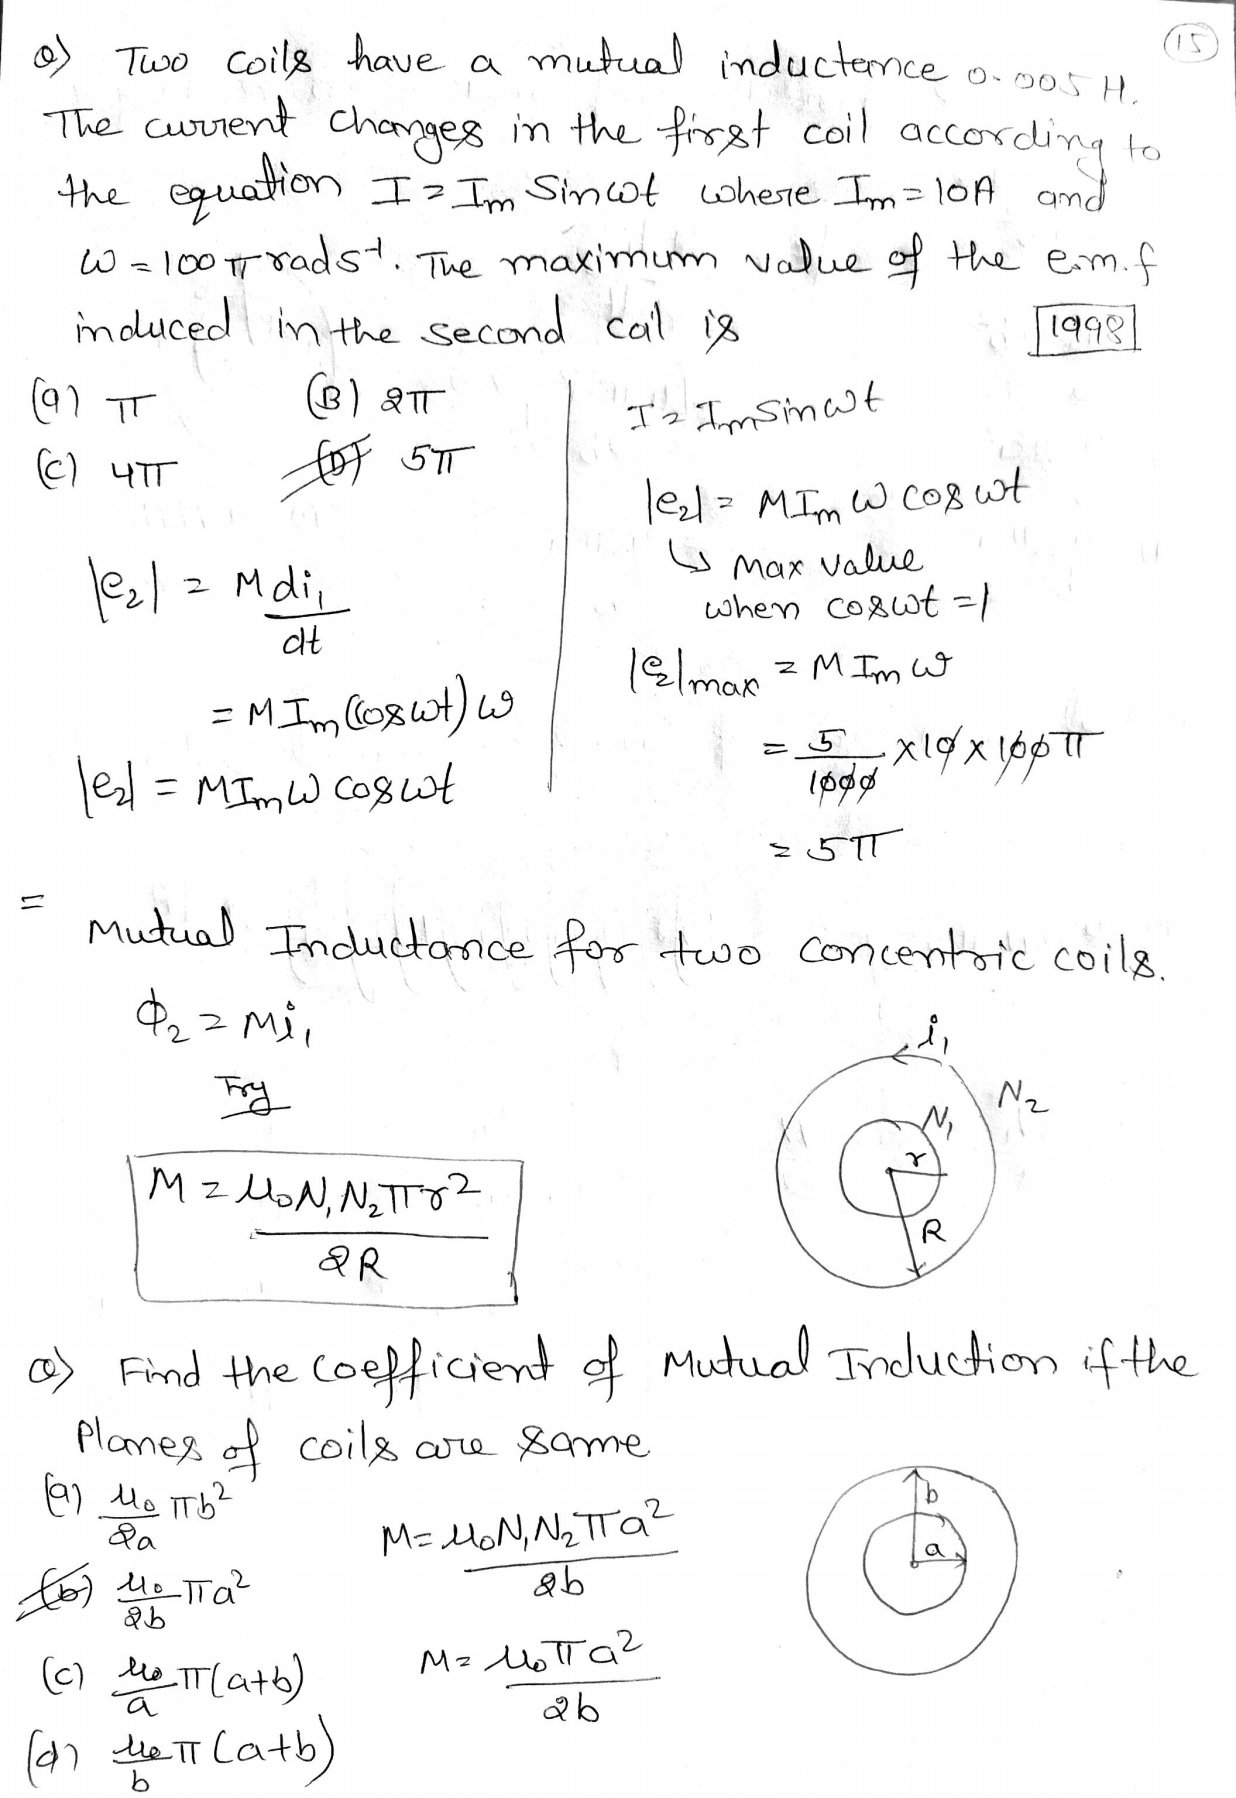 15
Q) Two coils have a mutual inductance 0.005 H.
The current changes in the first coil according to
the equation I = Im Sinωt where Im = 10A and
ω = 100π rad s⁻¹. The maximum value of the e.m.f
induced in the second coil is
1998
(a) π (B) 2π
(c) 4π (D) 5π
|e₂| = M di₁/dt
= M Im (cosωt) ω
|e₂| = M Im ω cosωt
I = Im Sinωt
|e₂| = M Im ω cosωt
↳ max value
when cosωt = 1
|e₂|max = M Im ω
= 5/1000 × 10 × 100π
= 5π
=
Mutual Inductance for two concentric coils.
ϕ₂ = Mi₁
Try
M = μ₀N₁N₂πr²/2R
i₁
N₂
N₁
r
R
Q) Find the coefficient of Mutual Induction if the
Planes of coils are same
(a) μ₀/2a πb²
(b) μ₀/2b πa²
(c) μ₀/a π(a+b)
(d) μ₀/b π(a+b)
M = μ₀N₁N₂πa²/2b
M = μ₀πa²/2b
b
a